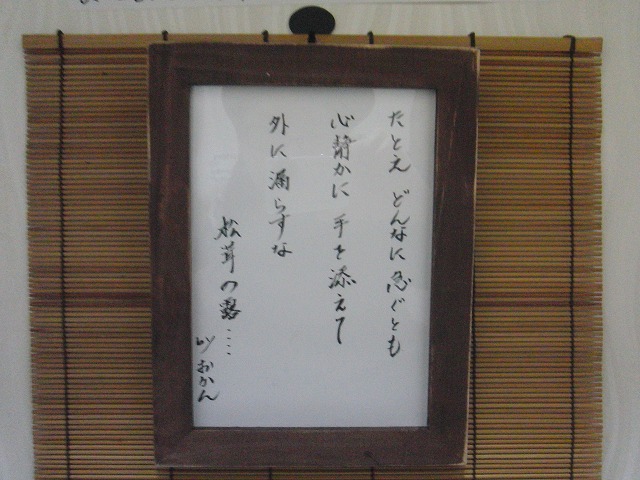 たとえ どんなに 急ぐとも
心静かに 手を添えて
外に漏らすな
松茸の露‥‥
by おかん